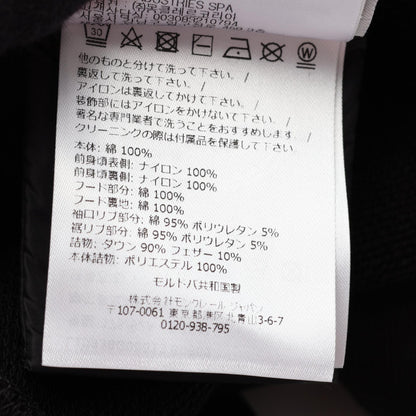 INDUSTRIES SPA
30
他のものと分けて洗って下さい。/
裏返して洗って下さい。/
アイロンは裏返してかけて下さい。/
装飾部にはアイロンをかけないで下さい。/
著名な専門業者で洗うことをおすすめします。/
クリーニングの際は付属品を保護して下さい。/
本体: 綿 100%
前身頃表側: ナイロン 100%
前身頃裏側: ナイロン 100%
フード部分: 綿 100%
フード裏地: 綿 100%
袖口リブ部分: 綿 95% ポリウレタン 5%
裾リブ部分: 綿 95% ポリウレタン 5%
詰物: ダウン 90% フェザー 10%
本体詰物: ポリエステル 100%
モルドバ共和国製
株式会社モンクレール ジャパン
〒107-0061 東京都港区北青山3-6-7
0120-938-795